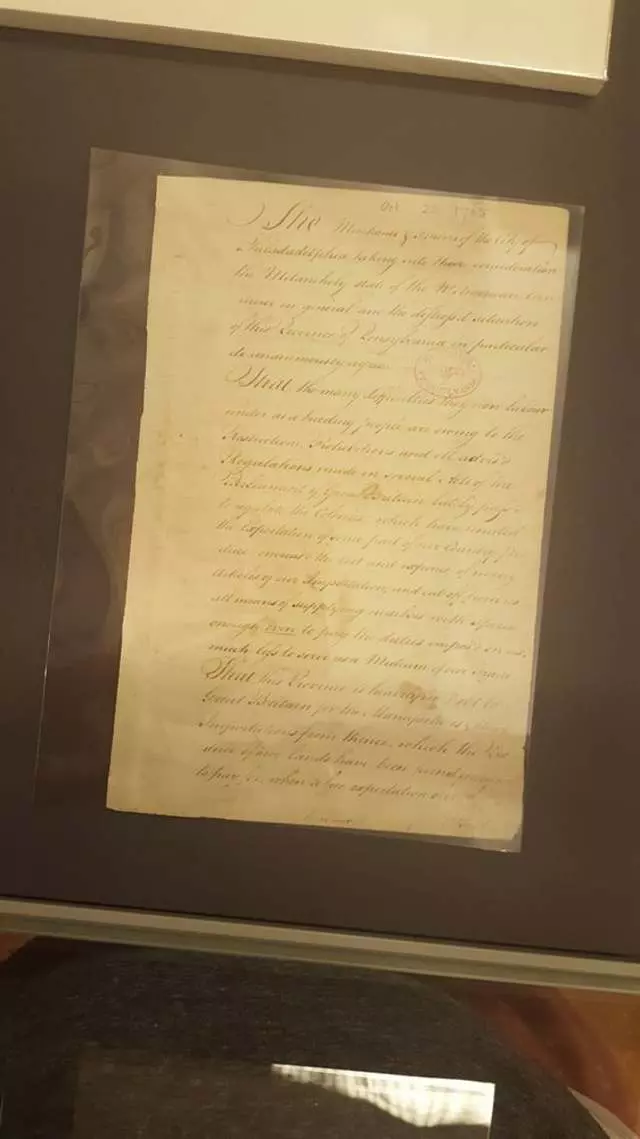 Oct 25 1765
The Merchants & Traders of the City of
Philadelphia taking into their consideration
the Melancholy state of the N. American Com
merce in general and the distressed situation
of this Province of Pensylvania in particular
do unanimously agree
That the many difficulties they now labour
under as a trading people are owing to the
Restrictions Prohibitions and ill advis'd
Regulations made in several Acts of the
Parliament of Great Britain lately pass'd
to regulate the Colonies which have limited
the Exportation of some part of our Country Pro
duce increas'd the cost and expence of many
Articles of our Importation, and cut off from us
all means of supplying ourselves with specie
enough even to pay the duties impos'd on us
much less to serve as a Medium of our
That this Province is heavily in Debt to
Great Britain for the Manufactures &
Importations from thence, which the Pro
duce of our Lands have been found
to pay for, when a free exportation